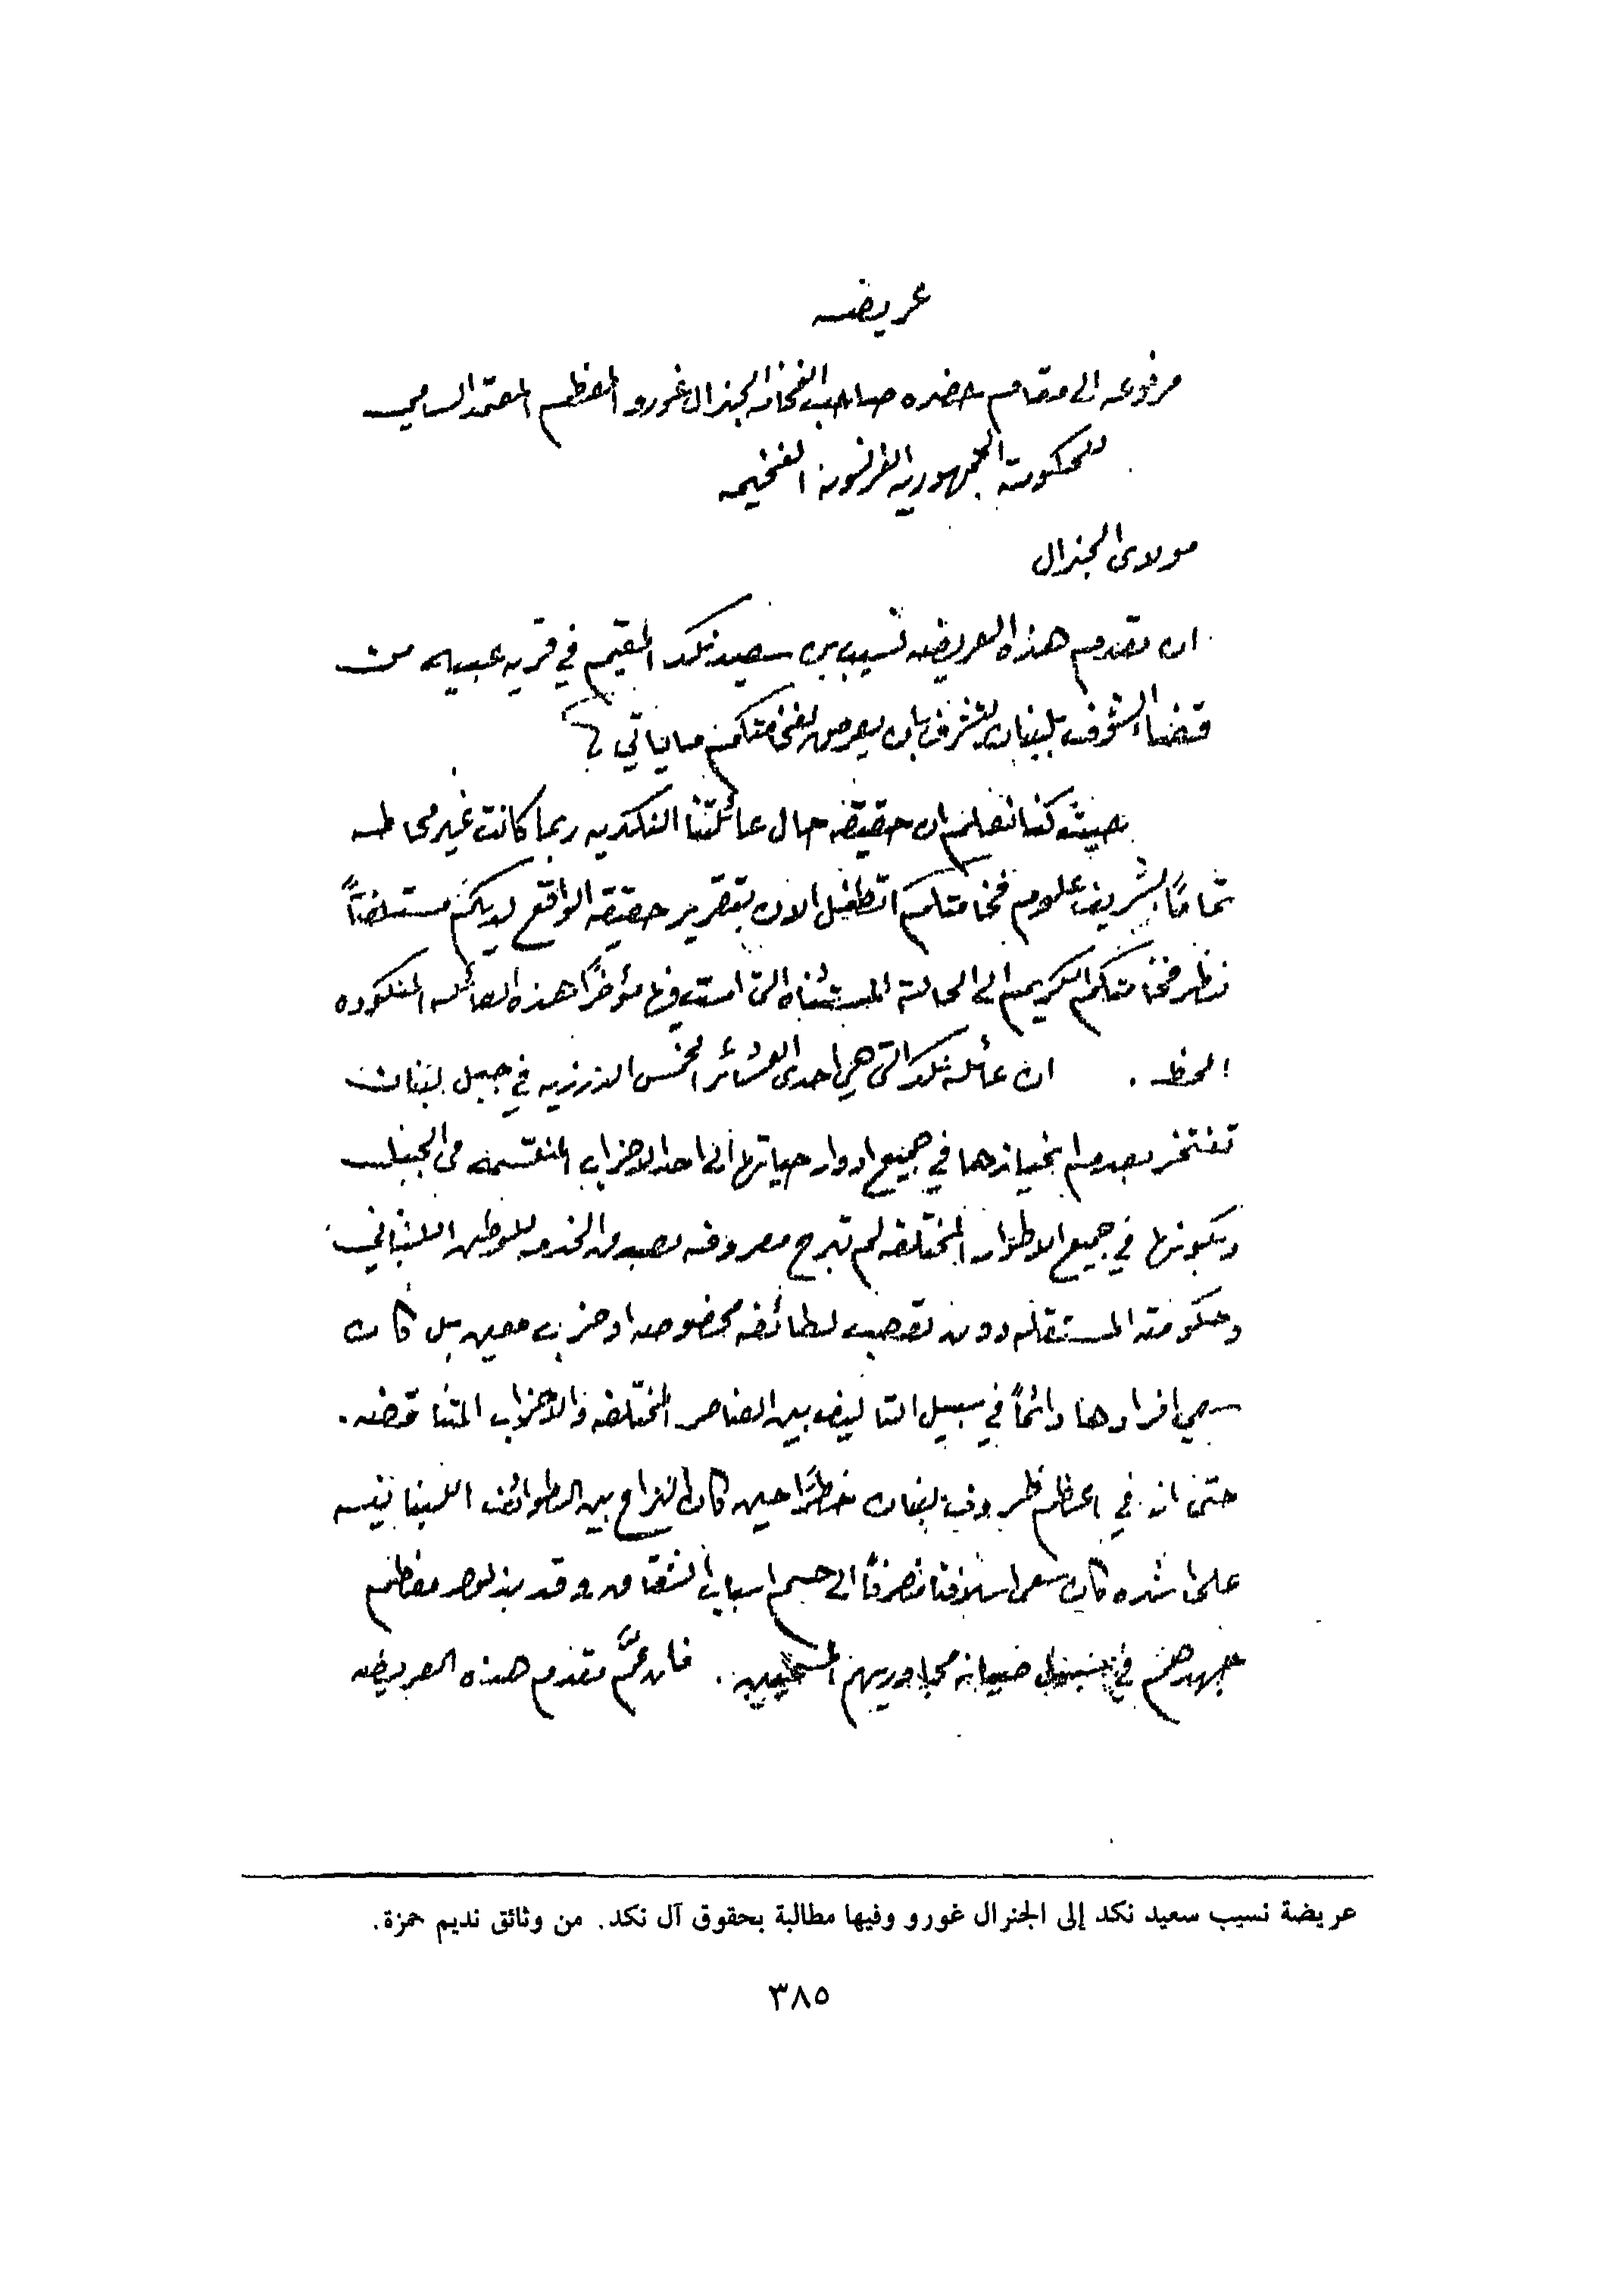 عريضه
مرفوعه الى مقام حضره صاحب الفخامه الجنرال غورو المعظم المعتمد السامي
للحكومة الجمهوريه الفرنسويه الفخيمه
مولاى الجنرال
ان مقدم هذه العريضه نسيب بن سعيد نكد المقيم في قريه عبيه من
قضا الشوف بلبنان يتشرف بان يعرض لفخامتكم ما ياتي
حيث كنا نعلم ان حقيقة حال عائلتنا النكديه ربما كانت غير محاطه
تماماً بشريف علوم فخامتكم اتطفل الان بتقرير حقيقه الواقع لديكم مستلفتاً
نظر فخامتكم الكريم الى الحالة المستثناه التى امست فيها مؤخراً هذه العائله المنكوده
الحظ . ان عائلة نكد التى هي احدى العشائر الخمس الدرزيه في جبل لبنان
تفتخر بعدم انحيازها في جميع ادوار حياتها الى احد الاحزاب المنقسمه فى الجبل
وبكونها في جميع الاطوار المختلفه لم تبرح معروفه بصدق الخدمه للوطن اللبناني
وحكومته المستقله دون تعصب لطائفه مخصوصه او حزب معين بل كان
سعي افرادها دائماً في سبيل التاليف بين العناصر المختلفه والاحزاب المتناقضه .
حتى انه في اعظم ظروف لبنان خطراً حين كان النزاع بين الطوائف اللبنانيه
على اشده كان سعى اسلافنا منصرفاً الى حسم اسباب الشقاق وقد بذلوا معظم
جهدهم في سبيل صيانة مجاوريهم المسيحيين . فان عمّ مقدم هذه العريضه
عريضة نسيب سعيد نكد إلى الجنرال غورو وفيها مطالبة بحقوق آل نكد. من وثائق نديم حمزة.
٣٨٥